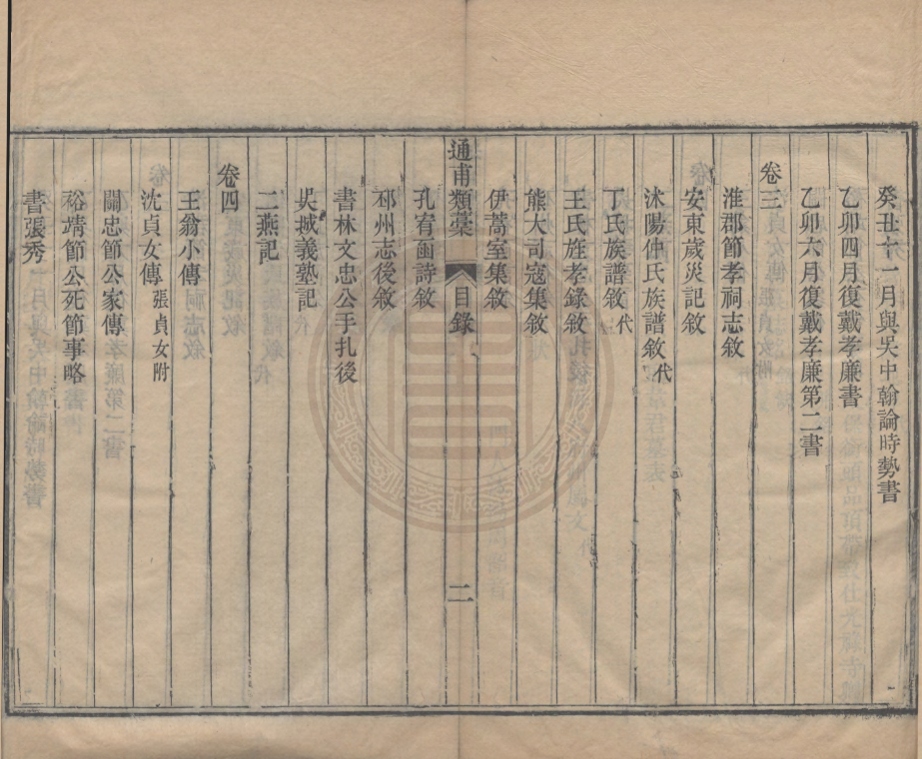 癸丑十一月與吳中翰論時勢書
乙卯四月復戴孝廉書
乙卯六月復戴孝廉第二書
卷三
淮郡節孝祠志敘
安東歲災記敘
沭陽仲氏族譜敘代
丁氏族譜敘代
王氏旌孝錄敘
熊大司寇集敘
伊蒿室集敘
通甫類藁 目錄 二
孔宥函詩敘
邳州志後敘
書林文忠公手札後
吳城義塾記
二燕記
卷四
王翁小傳
沈貞女傳張貞女附
關忠節公家傳
裕靖節公死節事略
書張秀